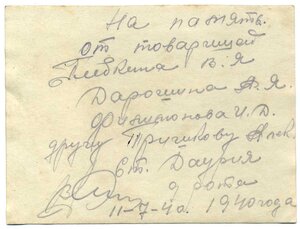 На память.
от товарищей
В.Я
Дарошина А.Я.
Филимонова И.Д.
другу Причикову Алек
ст. Даурия
9 рота
11-7-40. 1940 года